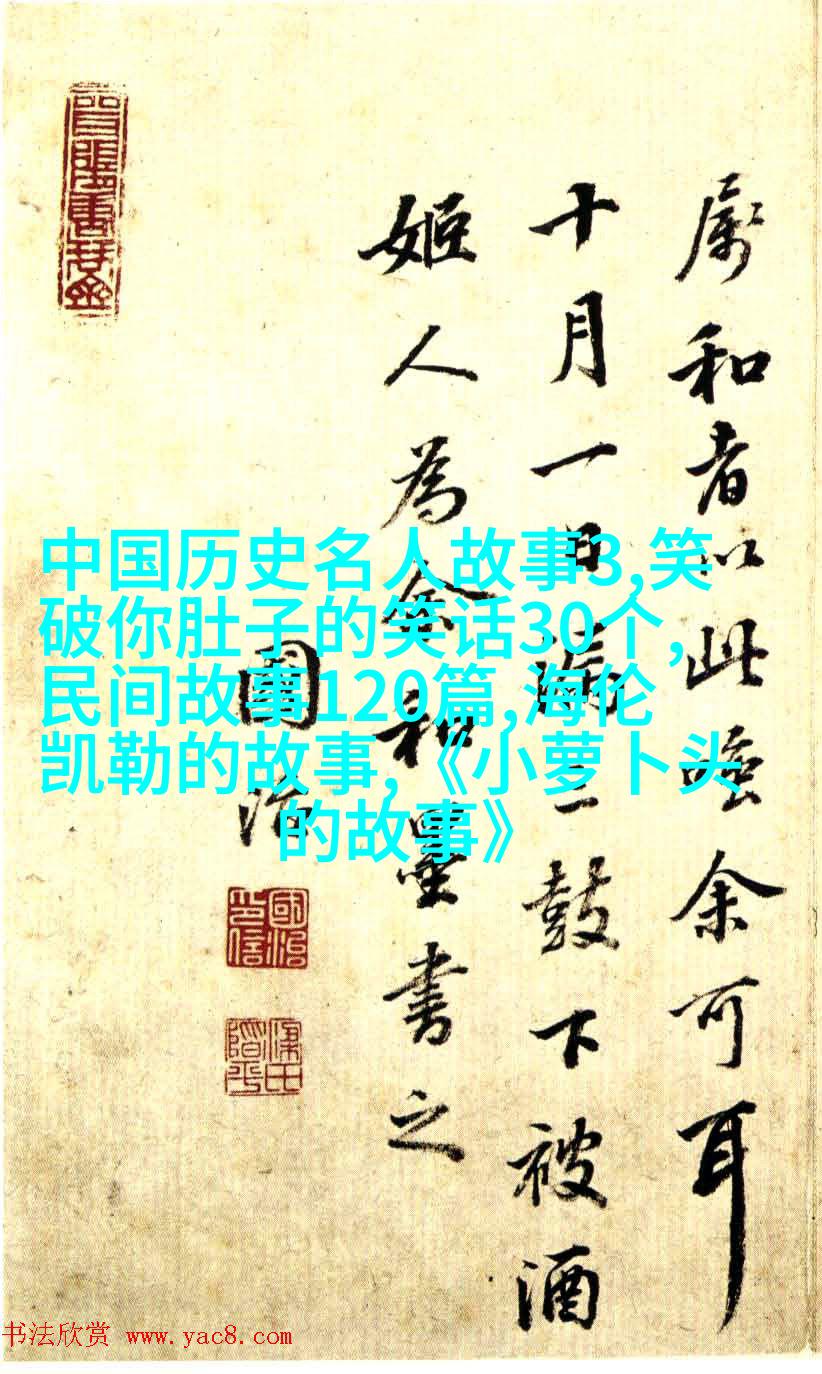 属和者以此唫余可耳
十月一日漏三鼓下被酒
姬人為余和墨書之
國治
中国历史名人故事3,笑
破你肚子的笑话30个,
民间故事120篇,海伦
凯勒的故事,《小萝卜头
的故事》
國治
印信
书法欣赏 www.yac8.com